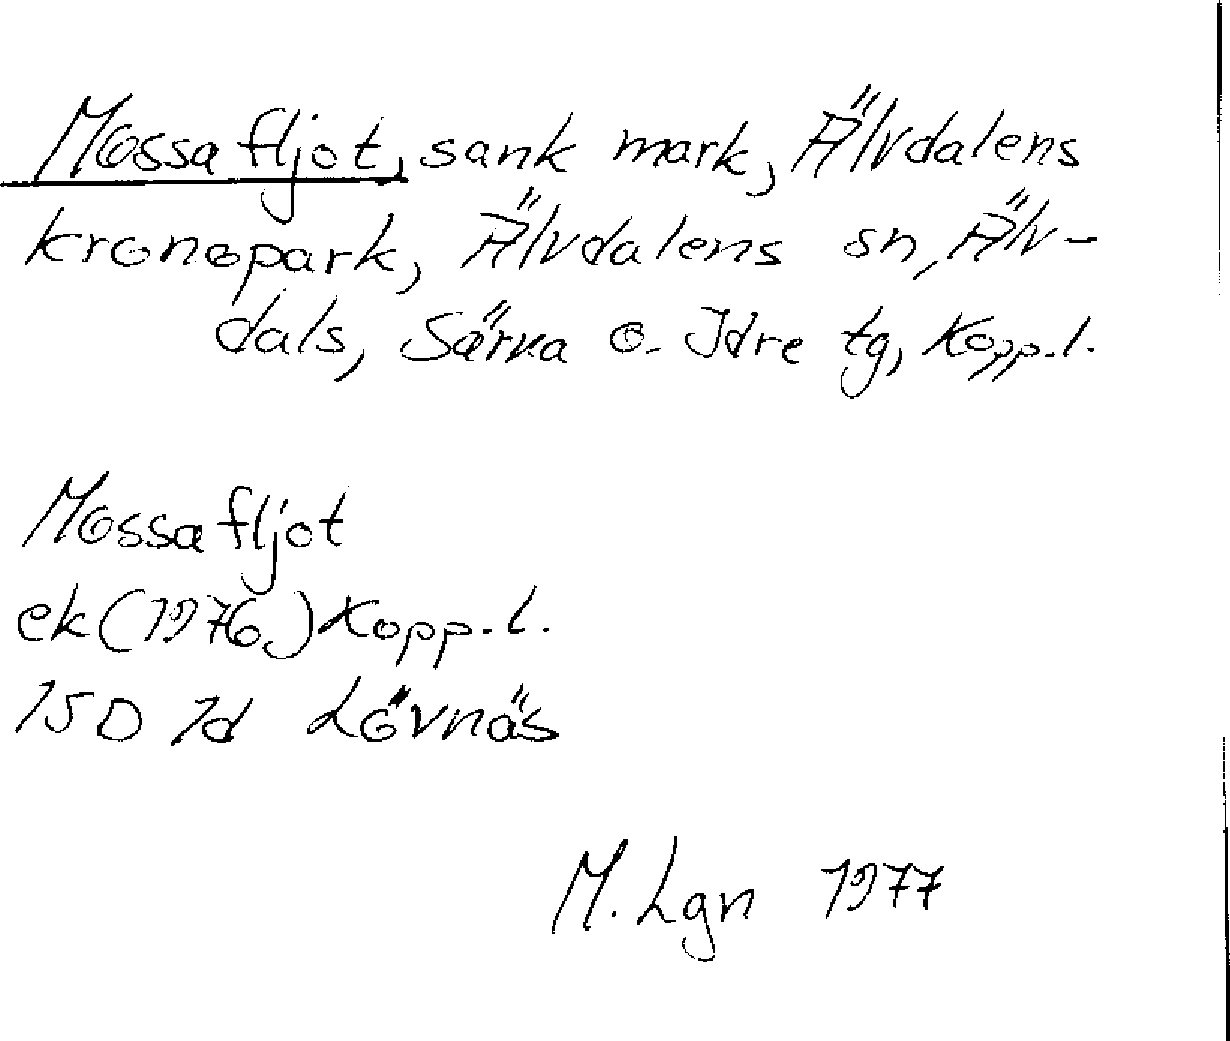 Mossafljot, sank mark, Älvdalens
kronopark, Älvdalens sn, Älv-
dals, Särna o. Idre tg, Kopp.l.
Mossafljot
ek (1976) Kopp.l.
15D 1d Lövnäs
M. Lgn 1977